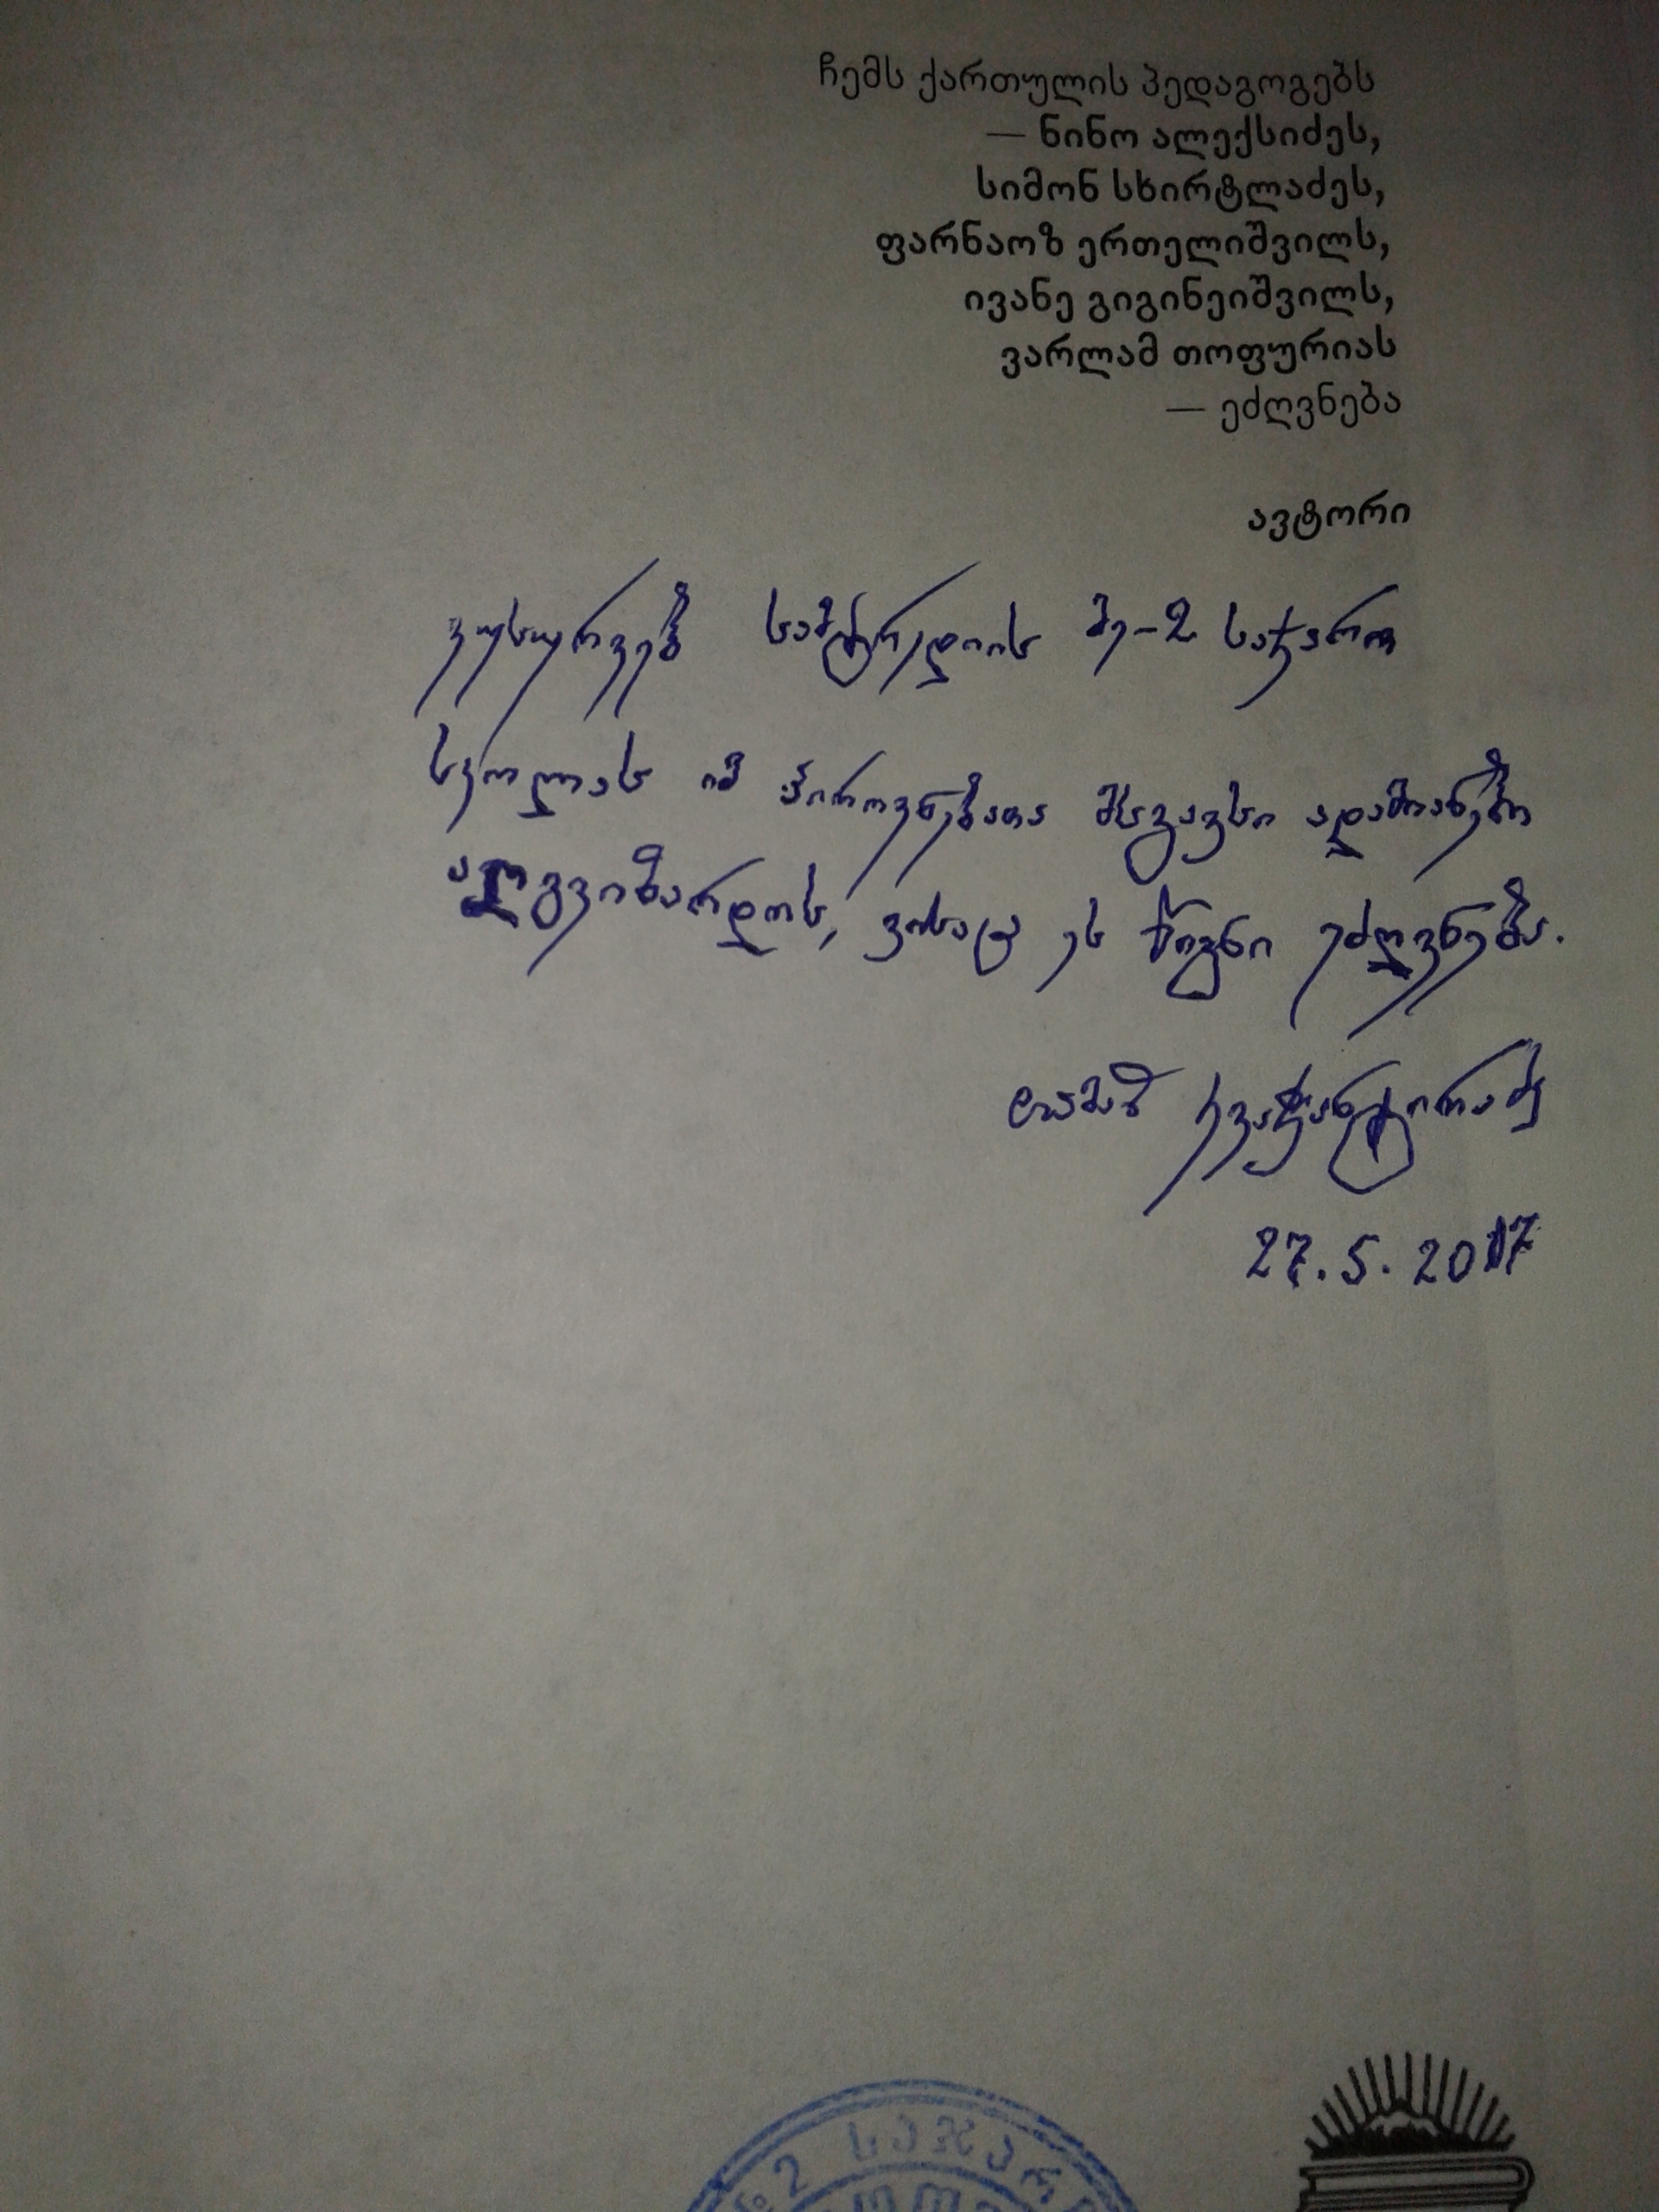 ჩემს ქართულის პედაგოგებს
— ნინო ალექსიძეს,
სიმონ სხირტლაძეს,
ფარნაოზ ერთელიშვილს,
ივანე გიგინეიშვილს,
ვარლამ თოფურიას
— ეძღვნება
ავტორი
ვუსურვებ სამტრედიის მე-2 საჯარო
სკოლას იმ პიროვნებათა მსგავსი ადამიანები
აღგვიზარდოს, ვისაც ეს წიგნი ეძღვნება.
თამაზ კვაჭანტირაძე
27.5.2017
№2 საჯარო